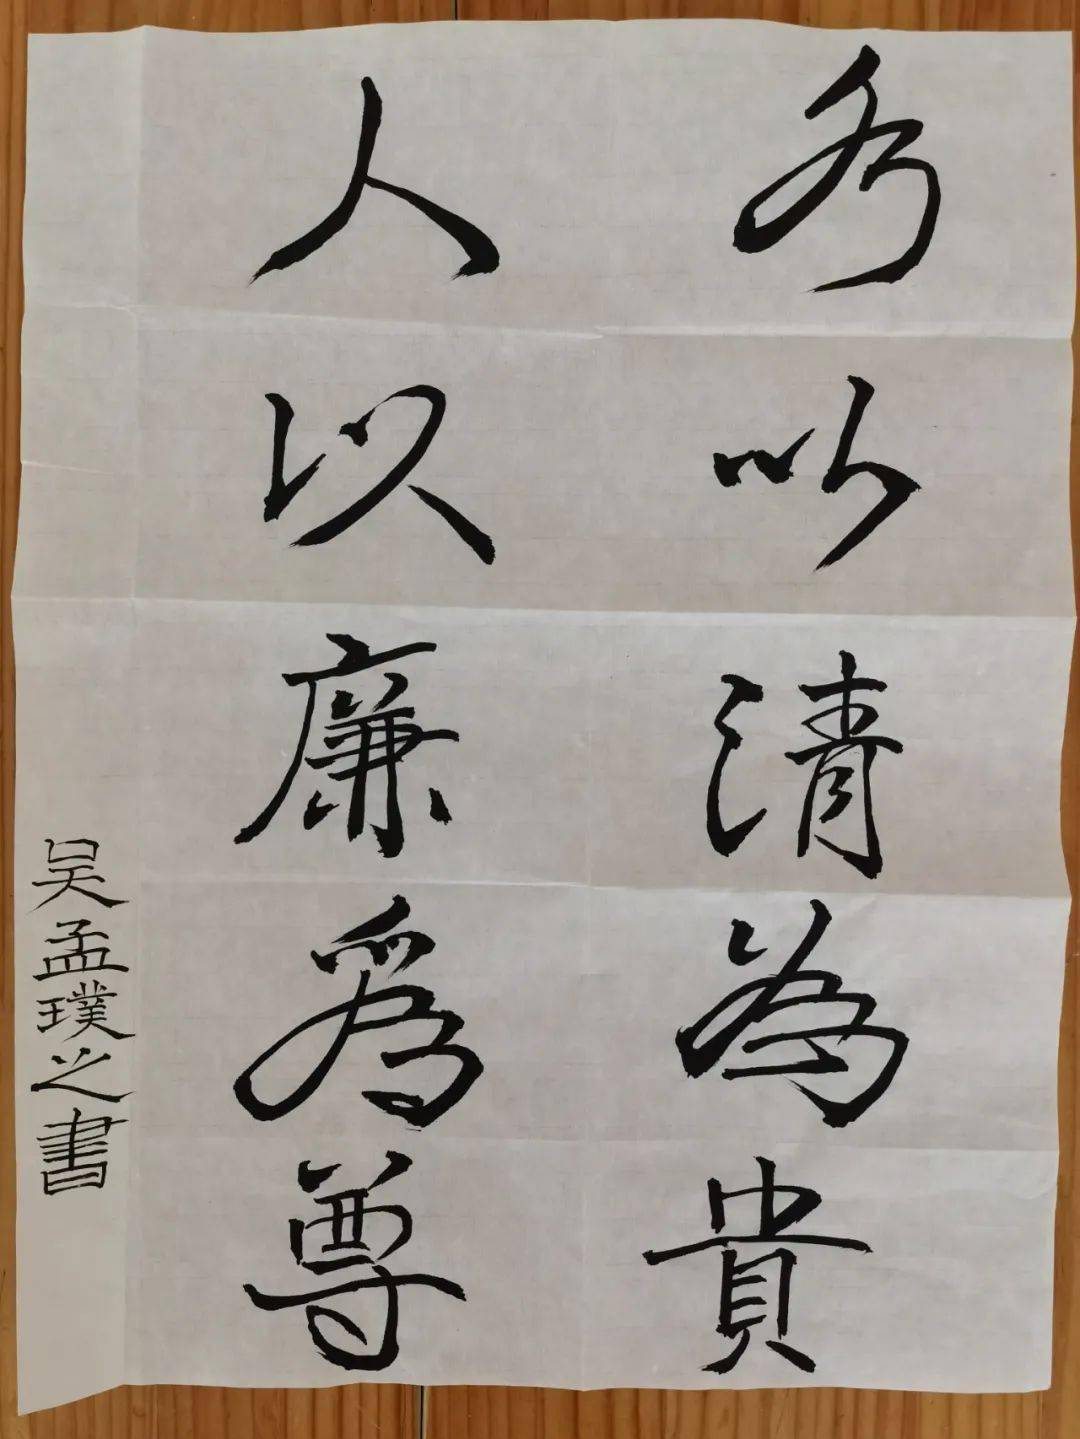 水以清為貴
人以廉爲尊
吴孟璞之書